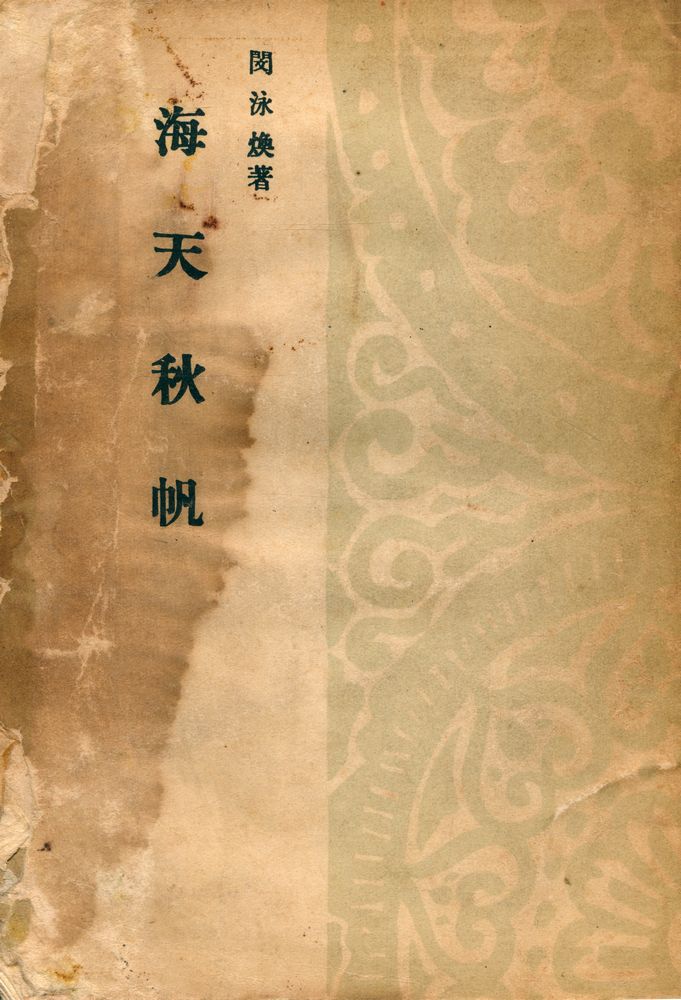 閔泳煥著
海天秋帆